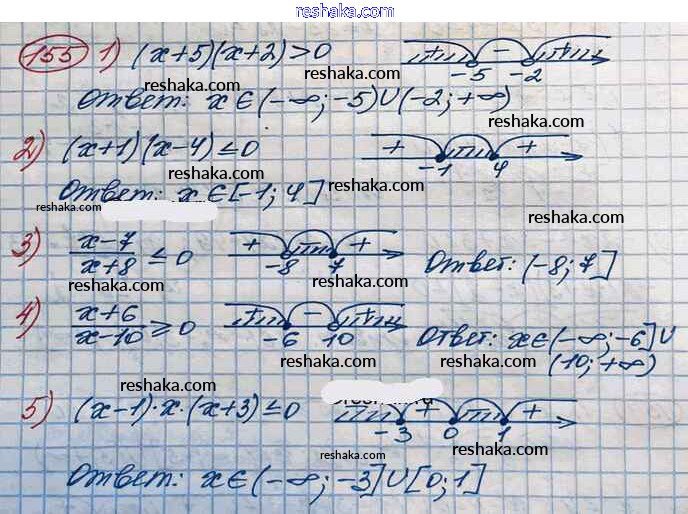 reshaka.com
reshaka.com
155 1) (x+5)(x+2)>0 + − + -5 -2
reshaka.com reshaka.com
Ответ: x∈(-∞; -5)∪(-2; +∞)
reshaka.com
2) (x+1)(x-4)≤0 + − + -1 4
reshaka.com
Ответ: x∈[-1; 4]
reshaka.com reshaka.com
3) (x-7)/(x+8) ≤ 0 + − + -8 7 Ответ: (-8; 7]
reshaka.com reshaka.com
4) (x+6)/(x-10) ≥ 0 + − + -6 10 Ответ: x∈(-∞; -6]∪(10; +∞)
reshaka.com reshaka.com
reshaka.com
5) (x-1)·x·(x+3)≤0 − + − + -3 0 1
reshaka.com reshaka.com
Ответ: x∈(-∞; -3]∪[0; 1]
reshaka.com reshaka.com